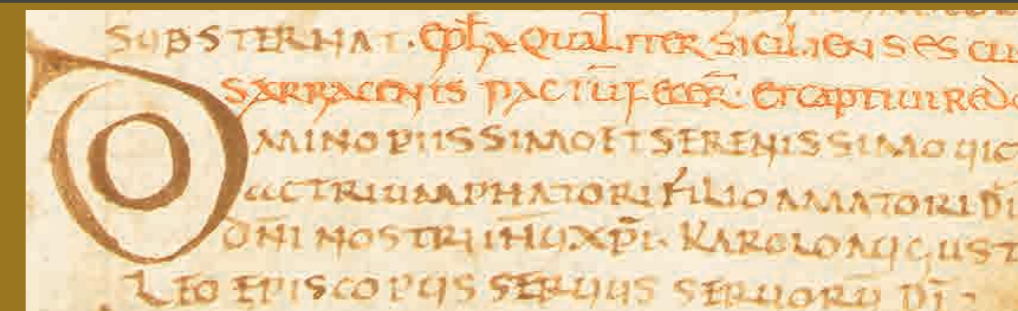 SUBSTERNAT. Epła QUALITER SICILIENSES CU
SARRACENIS PACTŪ FECER̄. ET CAPTIVI REDD
DOMINO PIISSIMO ET SERENISSIMO UIC
ACTRIUMPHATORI FILIO AMATORI DĪ
DN̄I NOSTRI IHŪ XP̄I. KAROLO AUGUST
LEO EPISCOPUS SERUUS SERUORŪ DĪ